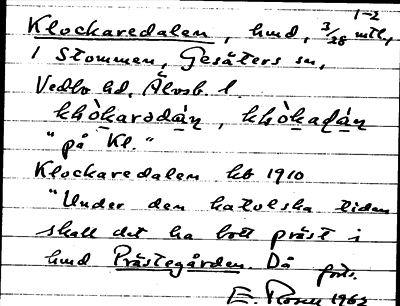 1-2
Klockaredalen, hmd, 3/28 mtl,
1 Stommen, Gesäters sn,
Vedbo hd, Älvsb. l.
khòkarsdàn, khòkadàn
"på Kl."
Klockaredalen kb 1910
"Under den katolska tiden
skall det ha bott präst i
hmd Prästegården. Då
forts.
E. Rosell 1962